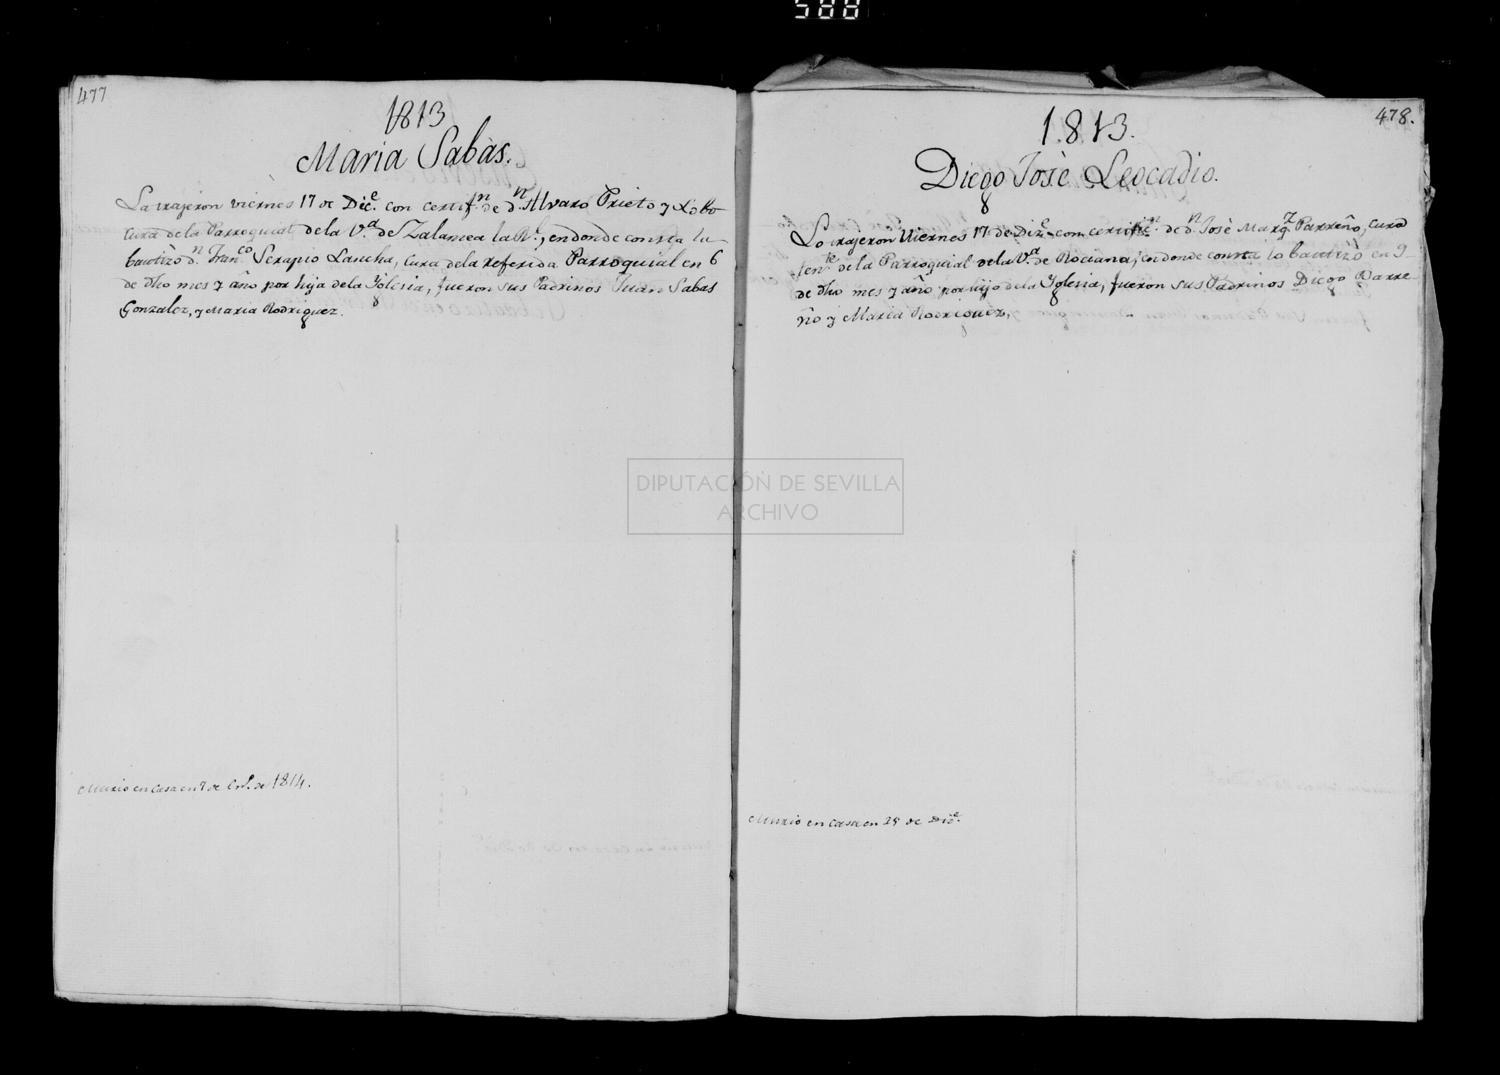 588
477
1813
Maria Sabas.
La trajeron viernes 17 de Dice. con certifn. de dn. Alvaro Prieto y Lobo
Cura de la Parroquial de la Va. de Zalamea la Rl., en donde consta la
bautizò dn. Franco. Serapio Lancha, Cura de la referida Parroquial en 6
de dho mes y año por hija de la Iglesia, fueron sus Padrinos Juan Sabas
Gonzalez, y Maria Rodriguez.
Murio en Casa en 7 de En.o de 1814.
478.
1813.
Diego Josè Leocadio.
Lo trajeron Viernes 17 de Dize. con certifn. de dn. Josè Marqz. Parreño, cura
tente. de la Parroquial de la Va. de Rociana, en donde consta lo bautizò en 9
de dho mes y año por hijo de la Yglesia, fueron sus Padrinos Diego Parre-
ño y Maria Rodriguez,
Murio en Casa en 25 de Dize.
DIPUTACIÓN DE SEVILLA
ARCHIVO